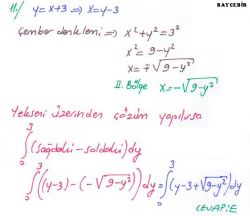 BAYCEBİR
11/ y=x+3 ⇒ x=y-3
Çember denklemi ⇒ x²+y²=3²
x²=9-y²
x=∓√(9-y²)
II. Bölge x=-√(9-y²)
Y ekseni üzerinden çözüm yapılırsa
∫₀³ (Sağdaki - soldaki) dy
∫₀³ ((y-3)-(-√(9-y²))) dy = ∫₀³ (y-3+√(9-y²)) dy
CEVAP:E